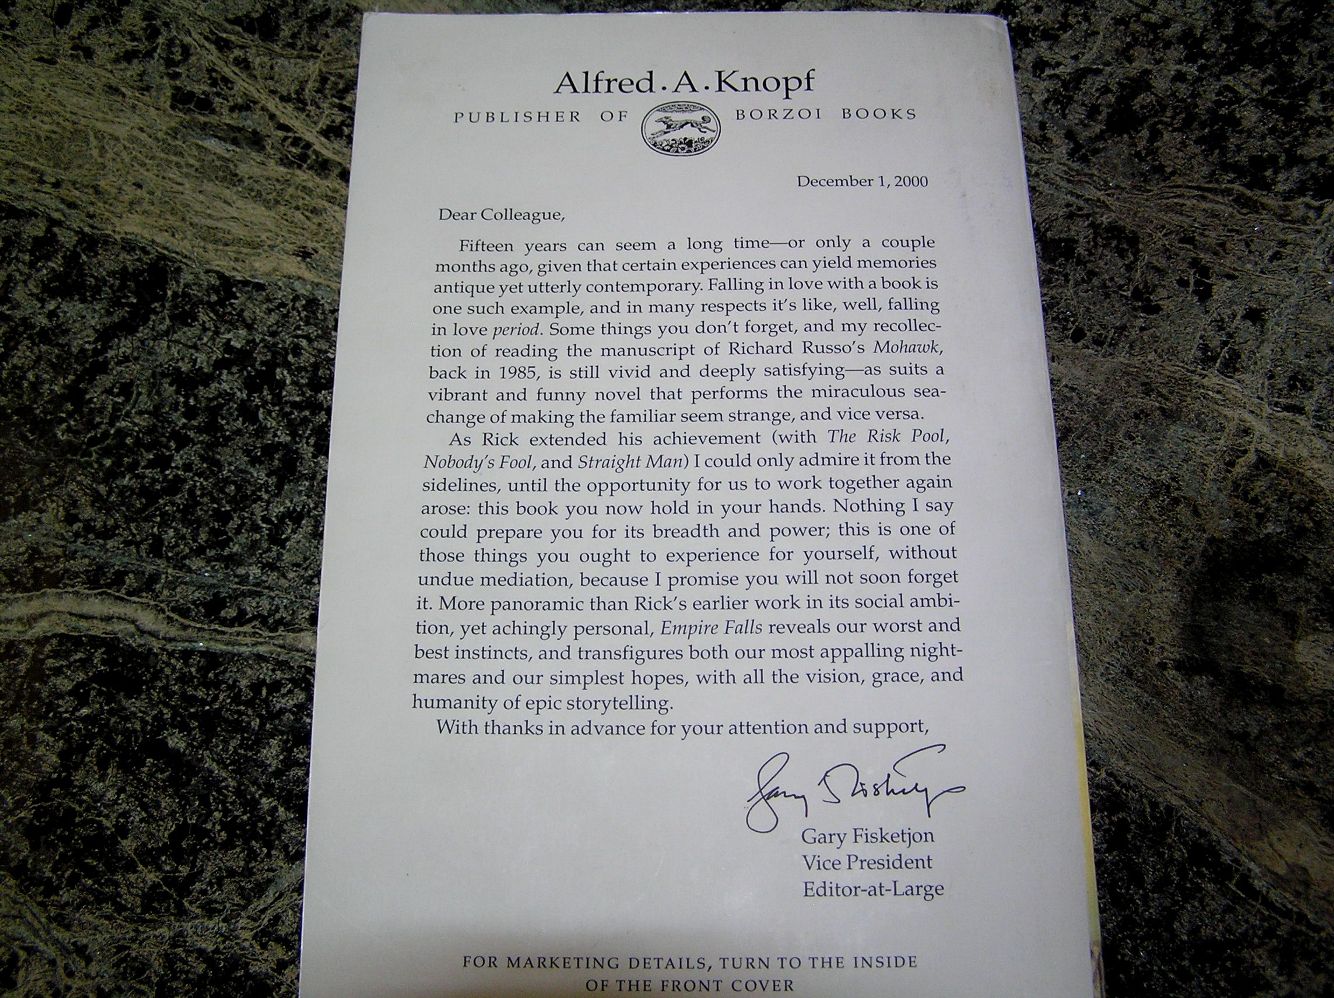 Alfred.A.Knopf
PUBLISHER OF BORZOI BOOKS
December 1, 2000
Dear Colleague,
Fifteen years can seem a long time—or only a couple
months ago, given that certain experiences can yield memories
antique yet utterly contemporary. Falling in love with a book is
one such example, and in many respects it's like, well, falling
in love period. Some things you don't forget, and my recollec-
tion of reading the manuscript of Richard Russo's Mohawk,
back in 1985, is still vivid and deeply satisfying—as suits a
vibrant and funny novel that performs the miraculous sea-
change of making the familiar seem strange, and vice versa.
As Rick extended his achievement (with The Risk Pool,
Nobody's Fool, and Straight Man) I could only admire it from the
sidelines, until the opportunity for us to work together again
arose: this book you now hold in your hands. Nothing I say
could prepare you for its breadth and power; this is one of
those things you ought to experience for yourself, without
undue mediation, because I promise you will not soon forget
it. More panoramic than Rick's earlier work in its social ambi-
tion, yet achingly personal, Empire Falls reveals our worst and
best instincts, and transfigures both our most appalling night-
mares and our simplest hopes, with all the vision, grace, and
humanity of epic storytelling.
With thanks in advance for your attention and support,
Gary Fisketjon
Gary Fisketjon
Vice President
Editor-at-Large
FOR MARKETING DETAILS, TURN TO THE INSIDE
OF THE FRONT COVER